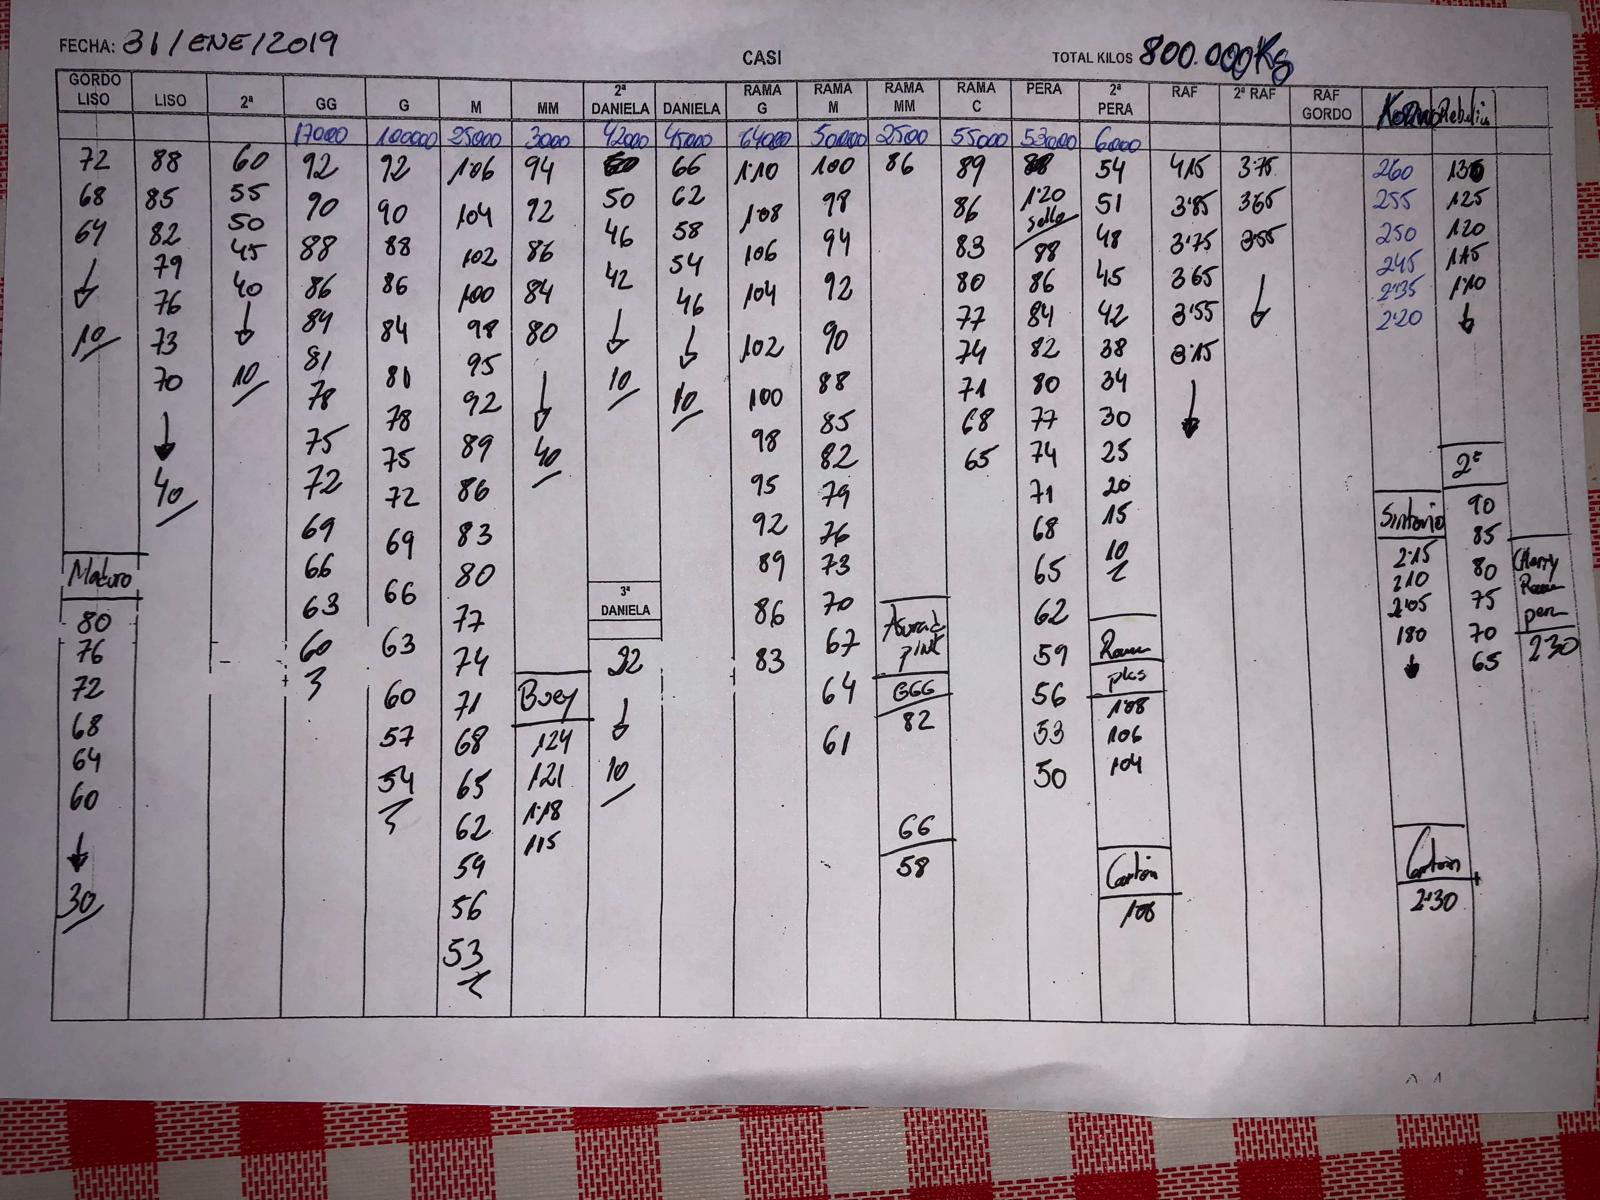 FECHA: 31/ENE/2019 CASI TOTAL KILOS 800.000Kg
GORDO LISO LISO 2ª GG G M MM 2ª DANIELA DANIELA RAMA G RAMA M RAMA MM RAMA C PERA 2ª PERA RAF 2ª RAF RAF GORDO Rebelin
17000 100000 25000 3000 42000 45000 64000 50000 2500 55000 53000 6000
72 88 60 92 92 106 94 60 66 1'10 100 86 89 88 54 4'15 3'75 260 130
68 85 55 90 90 104 92 50 62 108 98 86 1'20 sello 51 3'85 365 255 125
64 82 50 88 88 102 86 46 58 106 94 83 88 48 3'75 355 250 120
79 45 86 86 100 84 42 54 104 92 80 86 45 365 245 115
76 40 84 84 98 80 46 102 90 77 84 42 3'55 2'35 1'10
10 73 10 81 81 95 10 10 100 88 74 82 38 3'15 2'20
70 78 78 92 98 85 71 80 34
40 75 75 89 40 95 82 68 77 30
72 72 86 92 79 65 74 25 2ª
69 69 83 89 76 71 20 Sintorio 90
Maduro 66 66 80 86 73 68 15 2'15 85 Cherry
80 63 63 77 3ª DANIELA 83 70 65 10 210 80 Rama
76 60 60 74 32 67 pink 62 Rama 205 75 pera
72 57 71 Buey 10 64 GGG 59 pks 180 70 230
68 54 68 124 61 82 56 108 65
64 65 121 66 53 106
60 62 1'18 58 50 104
30 59 115 Carton Carton
56 108 2'30
53